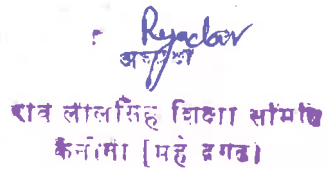 अध्यक्ष
राव लालसिंह शिक्षा समिति
कैनीना (महेन्द्रगढ)